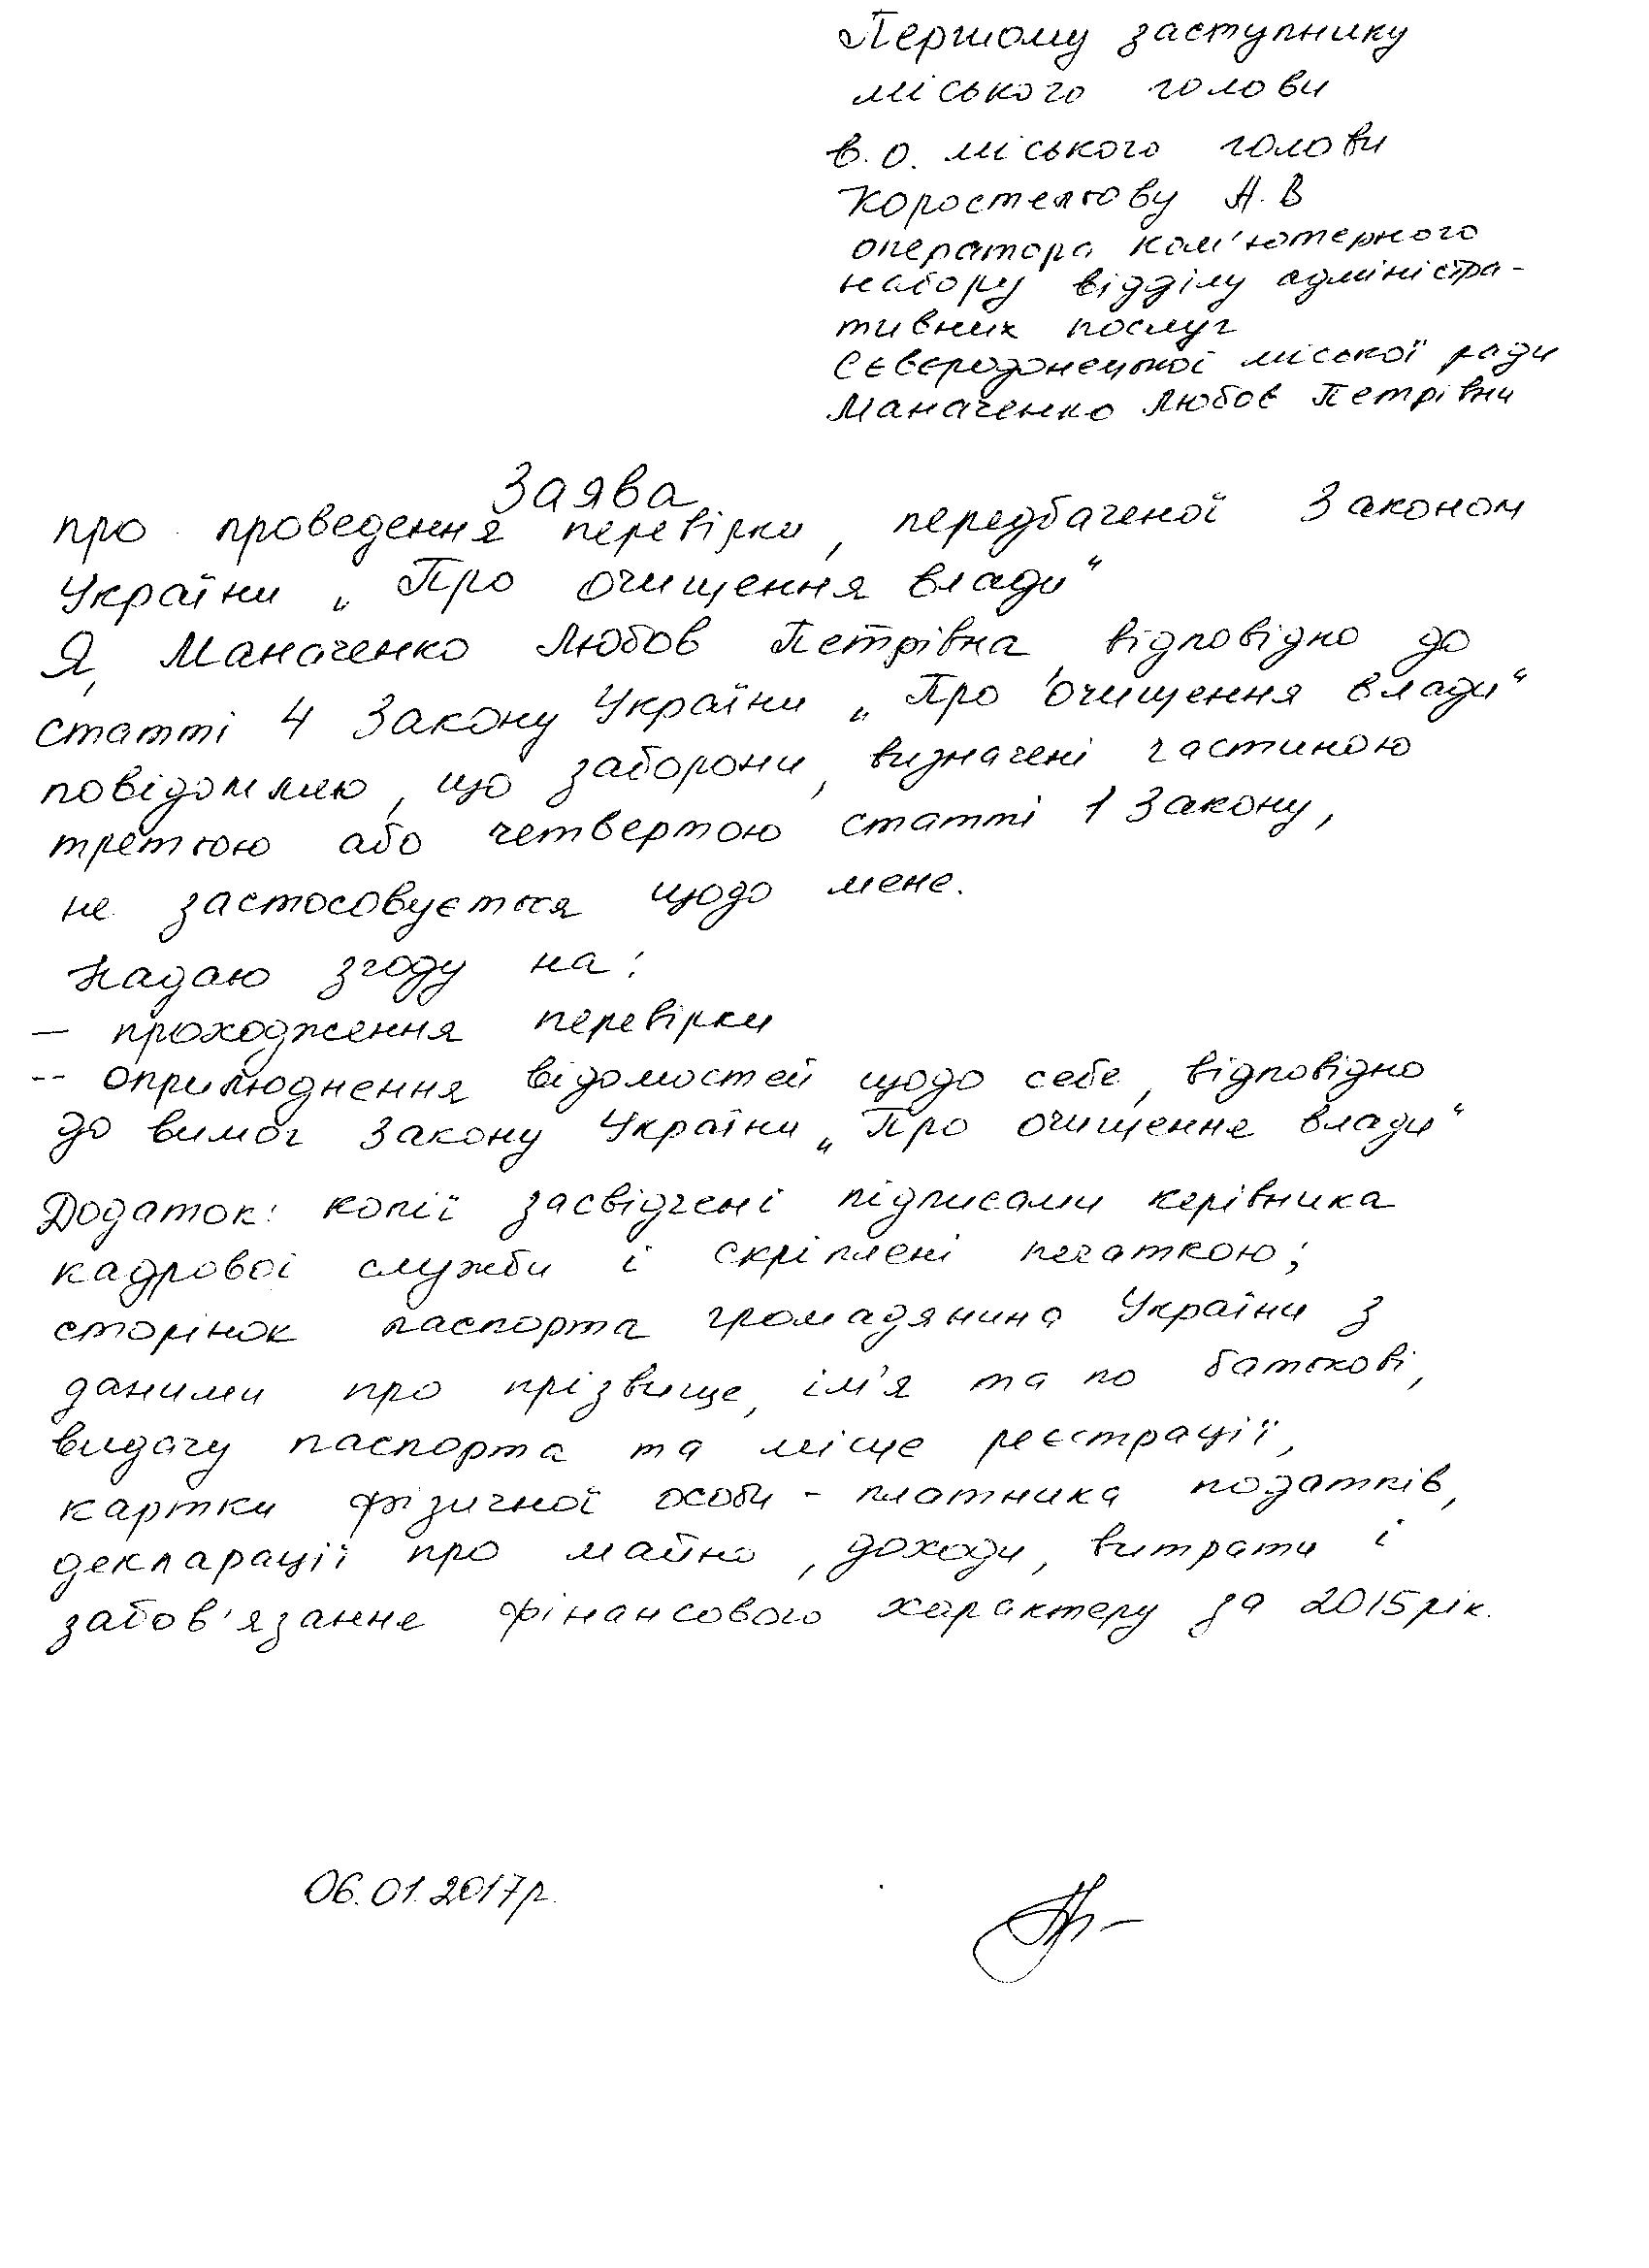 Першому заступнику
міського голови
в.о. міського голови
Коростельову А.В
оператора комп'ютерного
набору відділу адміністра-
тивних послуг
Сєвєродонецької міської ради
Маначенко Любов Петрівни
Заява
про проведення перевірки, передбаченої Законом
України „Про очищення влади"
Я, Маначенко Любов Петрівна, відповідно до
статті 4 Закону України „Про очищення влади"
повідомляю, що заборони, визначені частиною
третьою або четвертою статті 1 Закону,
не застосовується щодо мене.
Надаю згоду на:
— проходження перевірки
-- оприлюднення відомостей щодо себе, відповідно
до вимог Закону України „Про очищення влади"
Додаток: копії засвідчені підписами керівника
кадрової служби і скріплені печаткою;
сторінок паспорта громадянина України з
даними про прізвище, ім'я та по батькові,
видачу паспорта та місце реєстрації,
картки фізичної особи - платника податків,
декларації про майно, доходи, витрати і
забов'язання фінансового характеру за 2015 рік.
06.01.2017р.